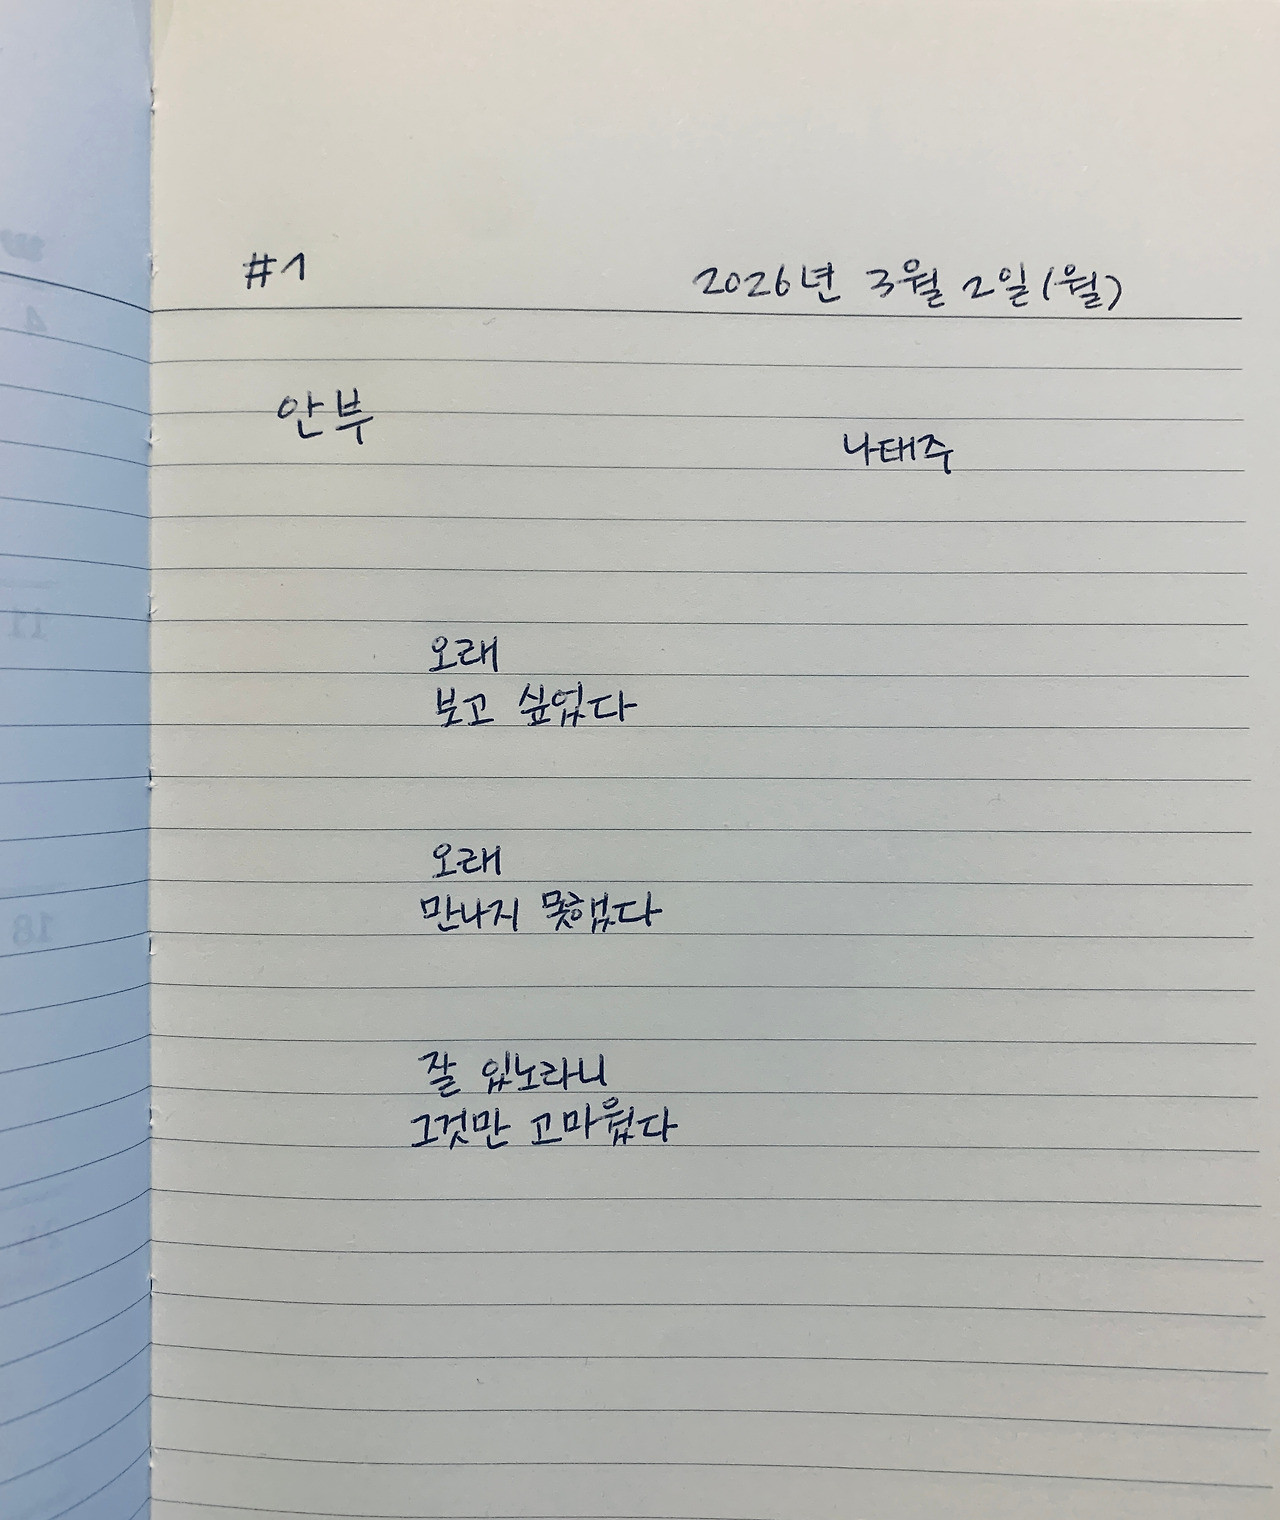 #1 2026년 3월 2일(월)
안부
나태주
오래
보고 싶었다
오래
만나지 못했다
잘 있노라니
그것만 고마웠다
4
11
18